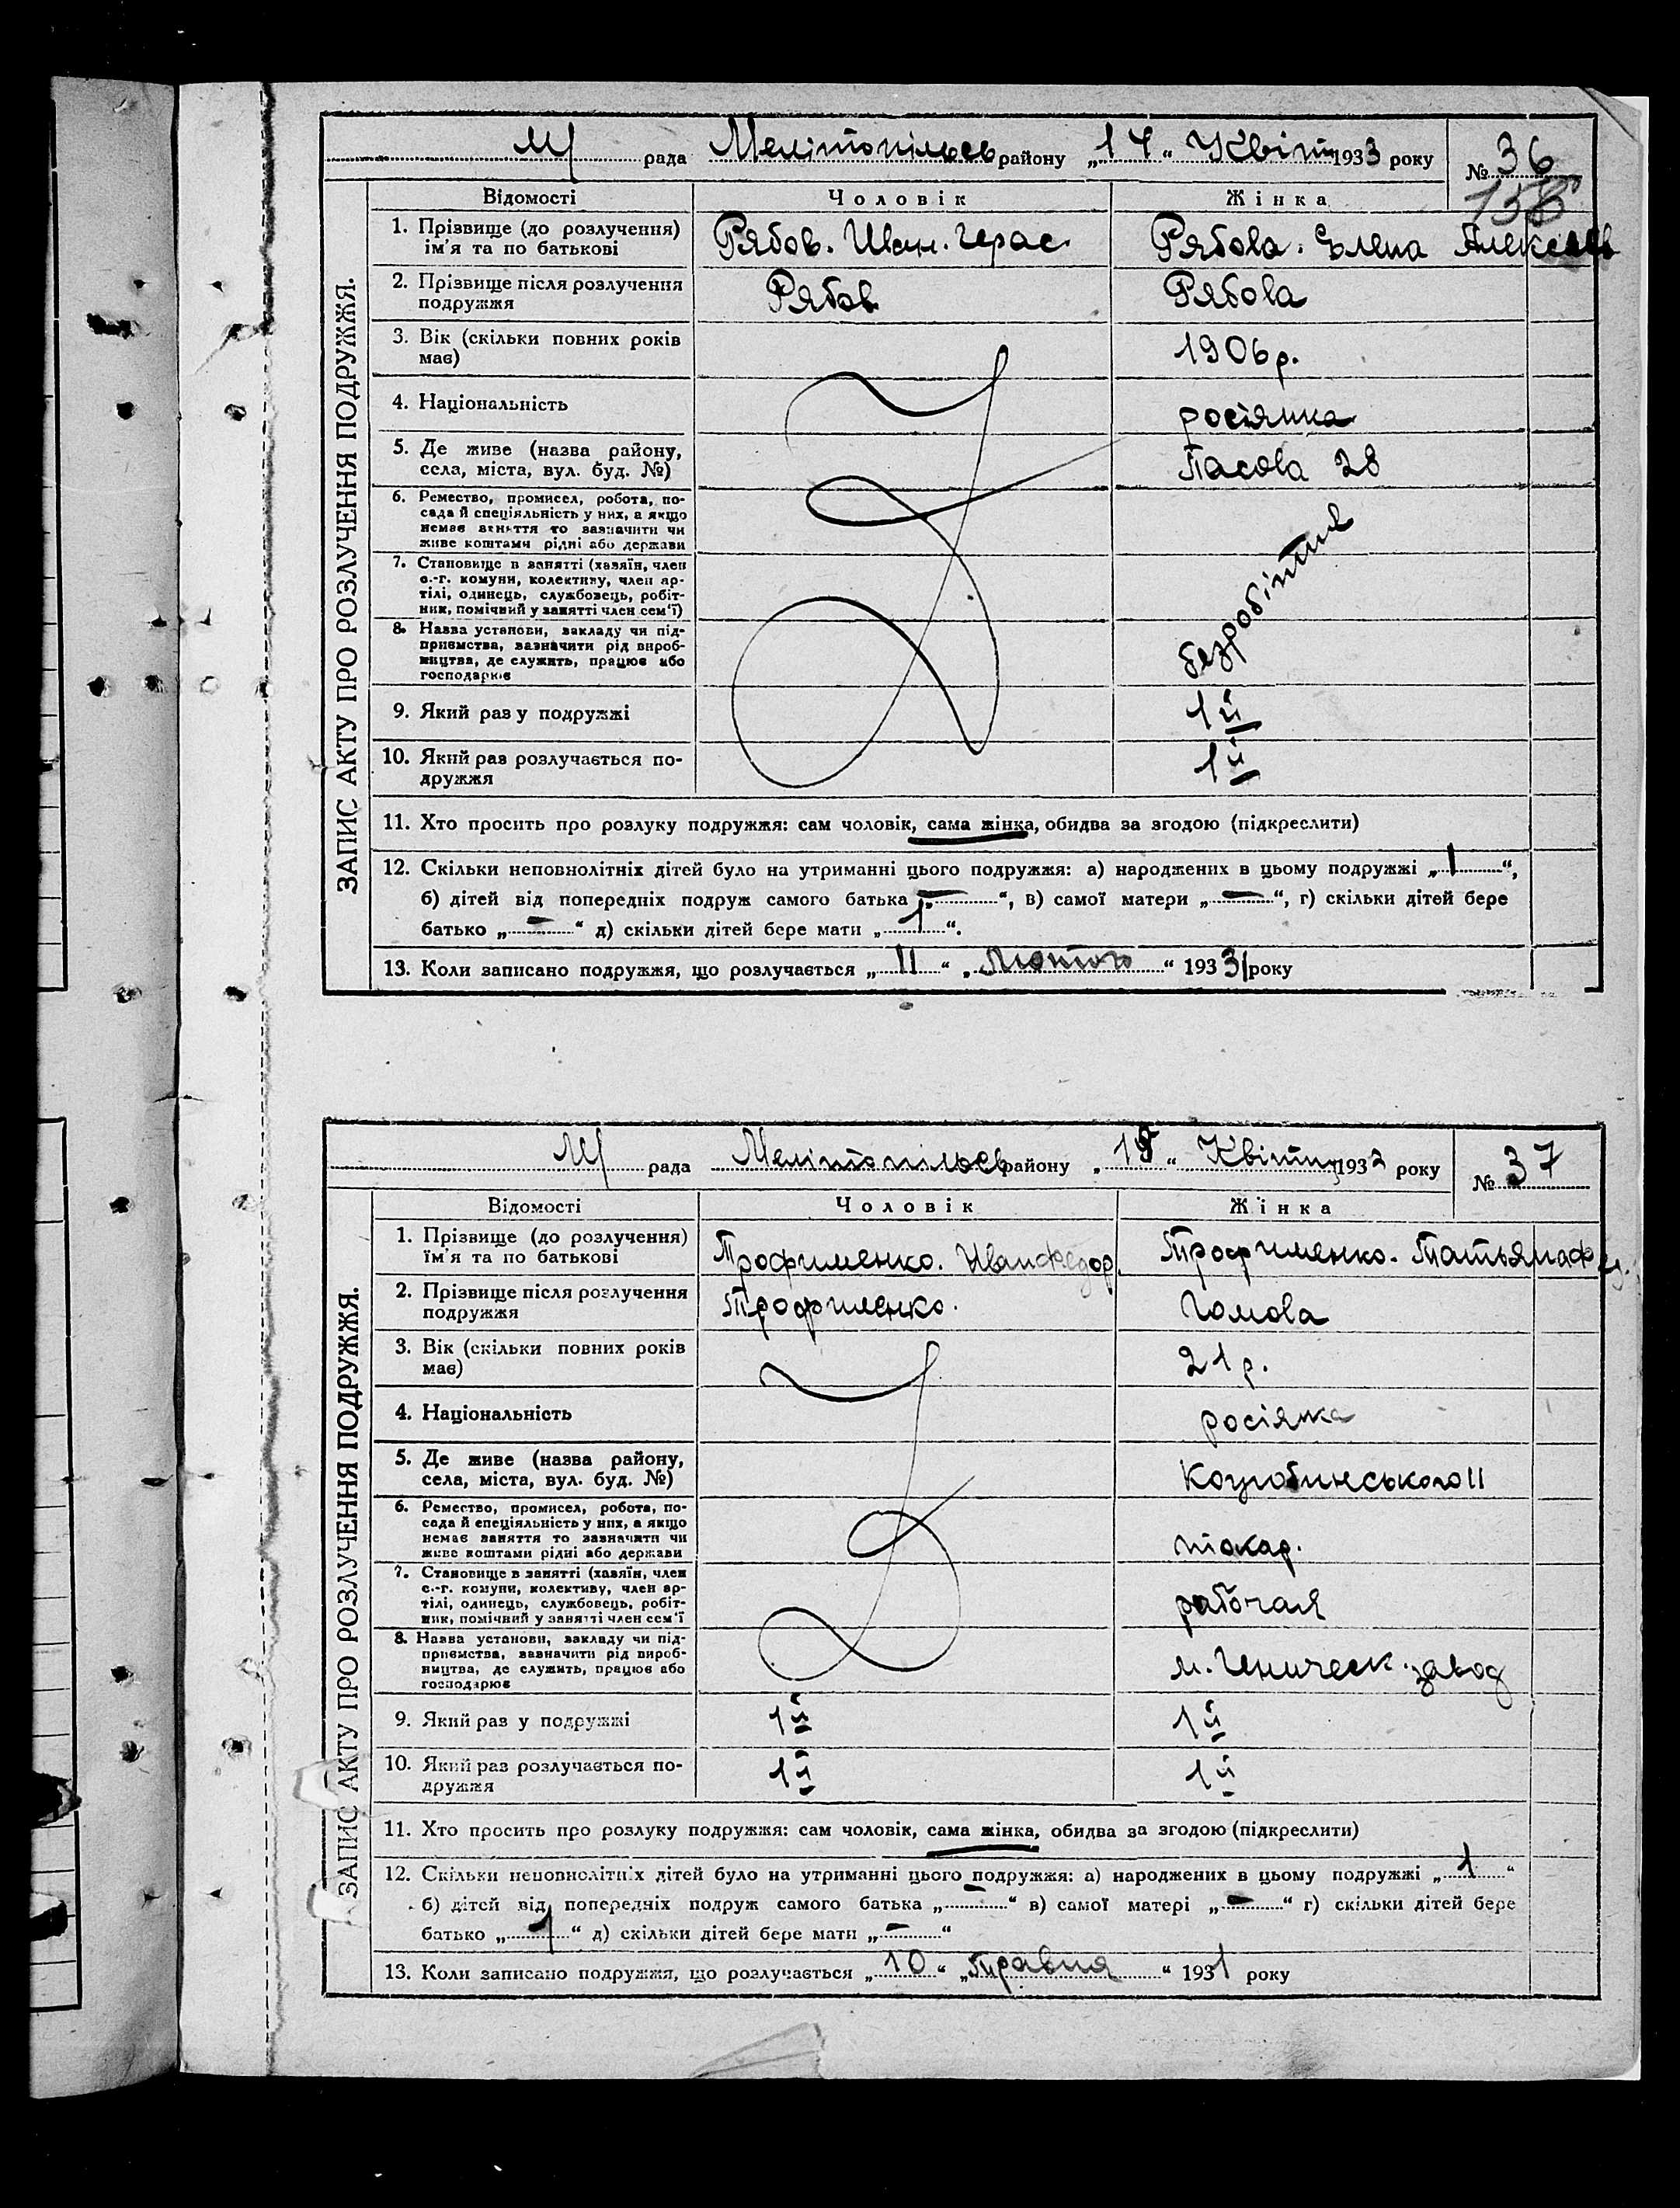 М/ рада Мелітопільськ району „14“ Квітн 1933 року № 36
158
Відомості Чоловік Жінка
1. Прізвище (до розлучення) ім'я та по батькові Рябов. Иван. Герас. Рябова. Елена Алексеев
2. Прізвище після розлучення подружжя Рябов Рябова
3. Вік (скільки повних років має) 1906 р.
4. Національність росіянка
5. Де живе (назва району, села, міста, вул. буд. №) 28
6. Ремество, промисел, робота, посада й спеціяльність у них, а якщо немає заняття то зазначити чи живе коштами рідні або держави
7. Становище в занятті (хазяїн, член с.-г. комуни, колективу, член артілі, одинець, службовець, робітник, помічний у занятті член сем'ї)
безробітня
8. Назва установи, закладу чи підприємства, зазначити рід виробництва, де служить, працює або господарює
9. Який раз у подружжі 1й
10. Який раз розлучається подружжя 1й
11. Хто просить про розлуку подружжя: сам чоловік, сама жінка, обидва за згодою (підкреслити)
12. Скільки неповнолітніх дітей було на утриманні цього подружжя: а) народжених в цьому подружжі „1“,
б) дітей від попередніх подруж самого батька „—“, в) самої матери „—“, г) скільки дітей бере
батько „—“ д) скільки дітей бере мати „1“.
13. Коли записано подружжя, що розлучається „11“ „Лютого“ 1931 року
ЗАПИС АКТУ ПРО РОЗЛУЧЕННЯ ПОДРУЖЖЯ.
М/ рада Мелітопільськ району „18“ Квітня 1932 року № 37
Відомості Чоловік Жінка
1. Прізвище (до розлучення) ім'я та по батькові Трофименко. Иван Федор. Трофименко. Татьяна Фед.
2. Прізвище після розлучення подружжя Трофименко. Гомова
3. Вік (скільки повних років має) 21 р.
4. Національність росіянка
5. Де живе (назва району, села, міста, вул. буд. №) Коцюбинського 11
6. Ремество, промисел, робота, посада й спеціяльність у них, а якщо немає заняття то зазначити чи живе коштами рідні або держави токар.
7. Становище в занятті (хазяїн, член с.-г. комуни, колективу, член артілі, одинець, службовець, робітник, помічний у занятті член сем'ї рабочая
8. Назва установи, закладу чи підприємства, зазначити рід виробництва, де служить, працює або господарює м. Геническ. завод
9. Який раз у подружжі 1й 1й
10. Який раз розлучається подружжя 1й 1й
11. Хто просить про розлуку подружжя: сам чоловік, сама жінка, обидва за згодою (підкреслити)
12. Скільки неповнолітніх дітей було на утриманні цього подружжя: а) народжених в цьому подружжі „1“
б) дітей від попередніх подруж самого батька „—“ в) самої матері „—“ г) скільки дітей бере
батько „1“ д) скільки дітей бере мати „—“
13. Коли записано подружжя, що розлучається „10“ „Травня“ 1931 року
ЗАПИС АКТУ ПРО РОЗЛУЧЕННЯ ПОДРУЖЖЯ.